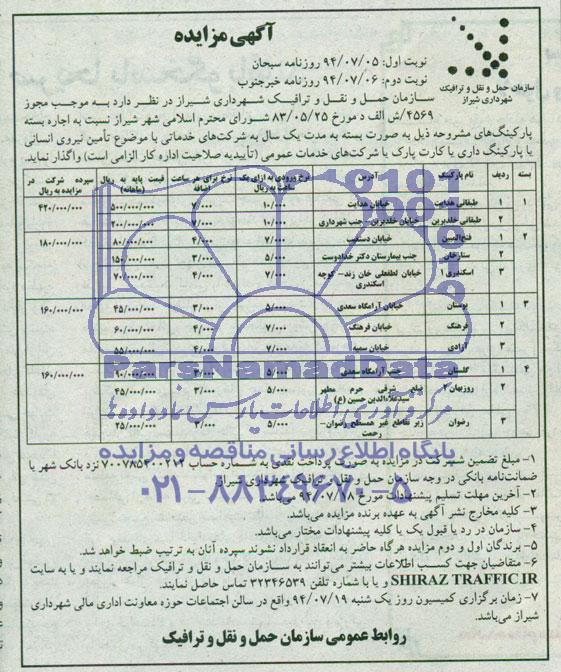 آگهی مزایده
سازمان حمل و نقل و ترافیک
شهرداری شیراز
نوبت اول: ۹۴/۰۷/۰۵ روزنامه سبحان
نوبت دوم: ۹۴/۰۷/۰۶ روزنامه خبرجنوب
سازمان حمـل و نقل و ترافیـک شهرداری شیـراز در نظر دارد بـه موجـب مجوز
۴۵۶۹/ش الف د مورخ ۸۳/۰۵/۲۵ شـورای محترم اسلامی شهر شیراز نسبت به اجاره بسته
پارکینگ‌های مشروحه ذیل به صورت بسته به مدت یک سال به شرکت‌های خدماتی با موضوع تأمین نیروی انسانی
یا پارکینگ داری یا کارت پارک یا شرکت‌های خدمات عمومی (تأییدیه صلاحیت اداره کار الزامی است) واگذار نماید.
بسته ردیف نام پارکینگ آدرس نرخ ورودی به ازای یک ساعت به ریال نرخ برای هر ساعت اضافه قیمت پایه به ریال (ماهانه) سپرده شرکت در مزایده به ریال
۱ ۱ طبقاتی هدایت خیابان هدایت ۱۰/۰۰۰ ۷/۰۰۰ ۵۰۰/۰۰۰/۰۰۰ ۴۲۰/۰۰۰/۰۰۰
۲ طبقاتی خلدبرین خیابان خلدبرین- جنب شهرداری ۱۰/۰۰۰ ۷/۰۰۰ ۲۰۰/۰۰۰/۰۰۰
۲ ۱ فتح‌المبین خیابان دستغیب ۷/۰۰۰ ۴/۰۰۰ ۸۰/۰۰۰/۰۰۰ ۱۸۰/۰۰۰/۰۰۰
۲ ستارخان جنب بیمارستان دکتر خدادوست ۵/۰۰۰ ۳/۰۰۰ ۱۵۰/۰۰۰/۰۰۰
۳ اسکندری ۱ خیابان لطفعلی خان زند- کوچه اسکندری ۷/۰۰۰ ۴/۰۰۰ ۷۰/۰۰۰/۰۰۰
۳ ۱ بوستان خیابان آرامگاه سعدی ۵/۰۰۰ ۳/۰۰۰ ۴۵/۰۰۰/۰۰۰ ۱۶۰/۰۰۰/۰۰۰
۲ فرهنگ خیابان فرهنگ ۷/۰۰۰ ۴/۰۰۰ ۶۰/۰۰۰/۰۰۰
۳ آزادی خیابان سمیه ۷/۰۰۰ ۴/۰۰۰ ۵۵/۰۰۰/۰۰۰
۴ ۱ گلستان جنب آرامگاه سعدی ۵/۰۰۰ ۳/۰۰۰ ۹۰/۰۰۰/۰۰۰ ۱۶۰/۰۰۰/۰۰۰
۲ روزبهان ۲ ضلع شرقی حرم مطهر سیدعلاءالدین حسین (ع) ۵/۰۰۰ ۳/۰۰۰ ۴۵/۰۰۰/۰۰۰
۳ رضوان زیر تقاطع غیر همسطح رضوان- رحمت ۵/۰۰۰ ۳/۰۰۰ ۲۵/۰۰۰/۰۰۰
ParsNamadData
مرکز فرآوری اطلاعات پارس نماد داده ها
پایگاه اطلاع رسانی مناقصه و مزایده
۰۲۱-۸۸۳۴۹۶۷۰-۵
۱- مبلغ تضمین شـرکت در مزایده به صورت پرداخت نقدی به شـماره حساب ۷۰۰۷۸۵۲۰۰۲۱۲ نزد بانک شهر یا
ضمانت‌نامه بانکی در وجه سازمان حمل و نقل و ترافیک شهرداری شیراز
۲- آخرین مهلت تسلیم پیشنهادات مورخ ۹۴/۰۷/۱۸ می‌باشد.
۳- کلیه مخارج نشر آگهی به عهده برنده مزایده می‌باشد.
۴- سازمان در رد یا قبول یک یا کلیه پیشنهادات مختار می‌باشد.
۵- برندگان اول و دوم مزایده هرگاه حاضر به انعقاد قرارداد نشوند سپرده آنان به ترتیب ضبط خواهد شد.
۶- متقاضیان جهت کسـب اطلاعات بیشتر می‌توانند به سـازمان حمل و نقل و ترافیک مراجعه نمایند و یا به سایت
SHIRAZ TRAFFIC.IR و یا با شماره تلفن ۳۲۳۴۶۵۳۹ تماس حاصل نمایند.
۷- زمان برگزاری کمیسیون روز یک شنبه ۹۴/۰۷/۱۹ واقع در سالن اجتماعات حوزه معاونت اداری مالی شهرداری
شیراز می‌باشد.
روابط عمومی سازمان حمل و نقل و ترافیک